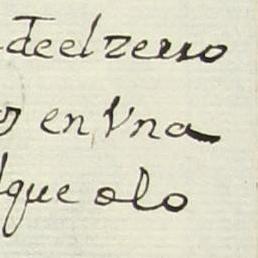 de el zerro
en Vna
que olo